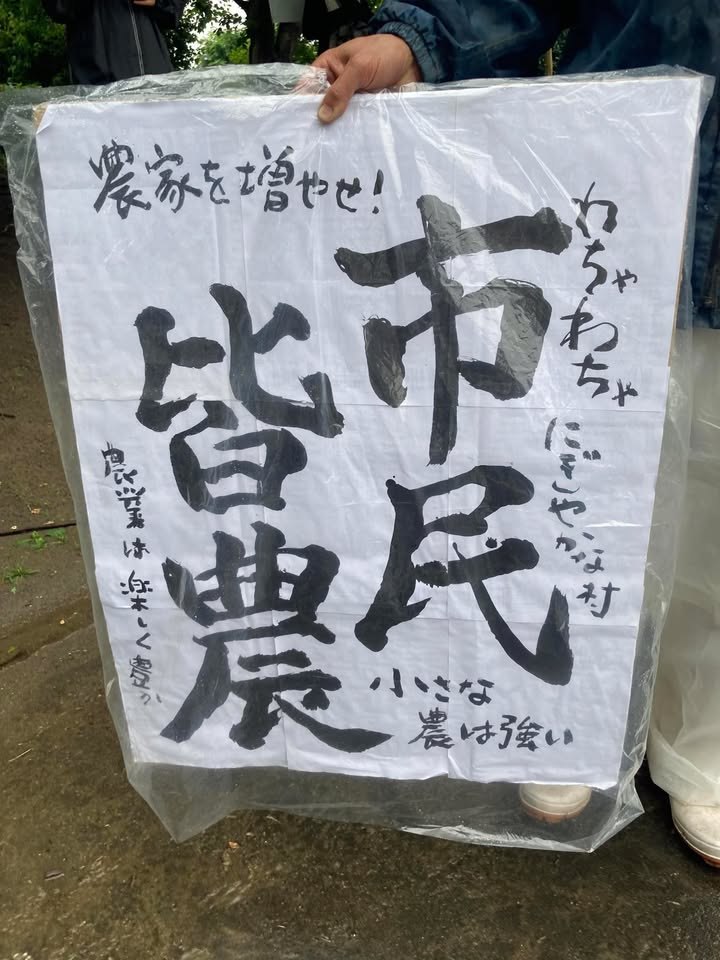 農家を増やせ!
わちゃわちゃ
にぎやかな村
市民
皆農
小さな
農は強い
農業は楽しく豊か